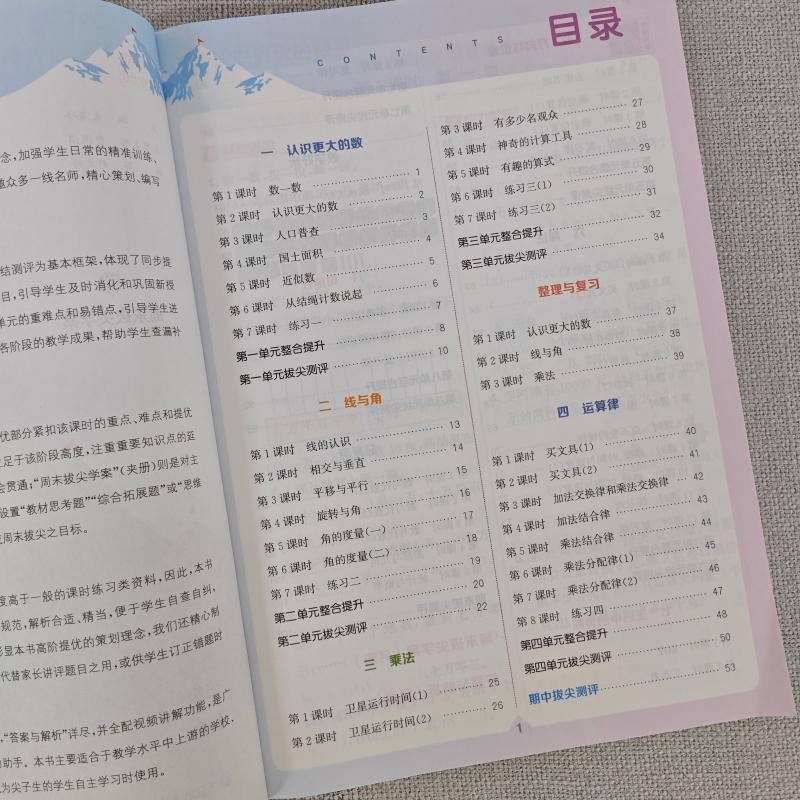 念，加强学生日常的精准训练、
众多一线名师，精心策划、编写
结测评为基本框架，体现了同步提
目，引导学生及时消化和巩固新授
单元的重难点和易错点，引导学生进
各阶段的教学成果，帮助学生查漏补
优部分紧扣该课时的重点、难点和提优
立足于该阶段高度，注重重要知识点的延
会贯通；“周末拔尖学案”（夹册）则是对主
设置“教材思考题”“综合拓展题”或“思维
周末拔尖之目标。
度高于一般的课时练习类资料，因此，本书
规范，解析合适、精当，便于学生自查自纠，
彰显本书高阶提优的策划理念，我们还精心制
代替家长讲评题目之用，或供学生订正错题时
，“答案与解析”详尽，并全配视频讲解功能，是广
助手。本书主要适合于教学水平中上游的学校，
为尖子生的学生自主学习时使用。
CONTENTS
目录
一 认识更大的数
第1课时 数一数 1
第2课时 认识更大的数 2
第3课时 人口普查 3
第4课时 国土面积 4
第5课时 近似数 5
第6课时 从结绳计数说起 6
第7课时 练习一 7
第一单元整合提升 8
第一单元拔尖测评 10
二 线与角
第1课时 线的认识 13
第2课时 相交与垂直 14
第3课时 平移与平行 15
第4课时 旋转与角 16
第5课时 角的度量(一) 17
第6课时 角的度量(二) 18
第7课时 练习二 19
第二单元整合提升 20
第二单元拔尖测评 22
三 乘法
第1课时 卫星运行时间(1) 25
第2课时 卫星运行时间(2) 26
第3课时 有多少名观众 27
第4课时 神奇的计算工具 28
第5课时 有趣的算式 29
第6课时 练习三(1) 30
第7课时 练习三(2) 31
第三单元整合提升 32
第三单元拔尖测评 34
整理与复习
第1课时 认识更大的数 37
第2课时 线与角 38
第3课时 乘法 39
四 运算律
第1课时 买文具(1) 40
第2课时 买文具(2) 41
第3课时 加法交换律和乘法交换律 42
第4课时 加法结合律 43
第5课时 乘法结合律 44
第6课时 乘法分配律(1) 45
第7课时 乘法分配律(2) 46
第8课时 练习四 47
第四单元整合提升 48
第四单元拔尖测评 50
期中拔尖测评 53
1